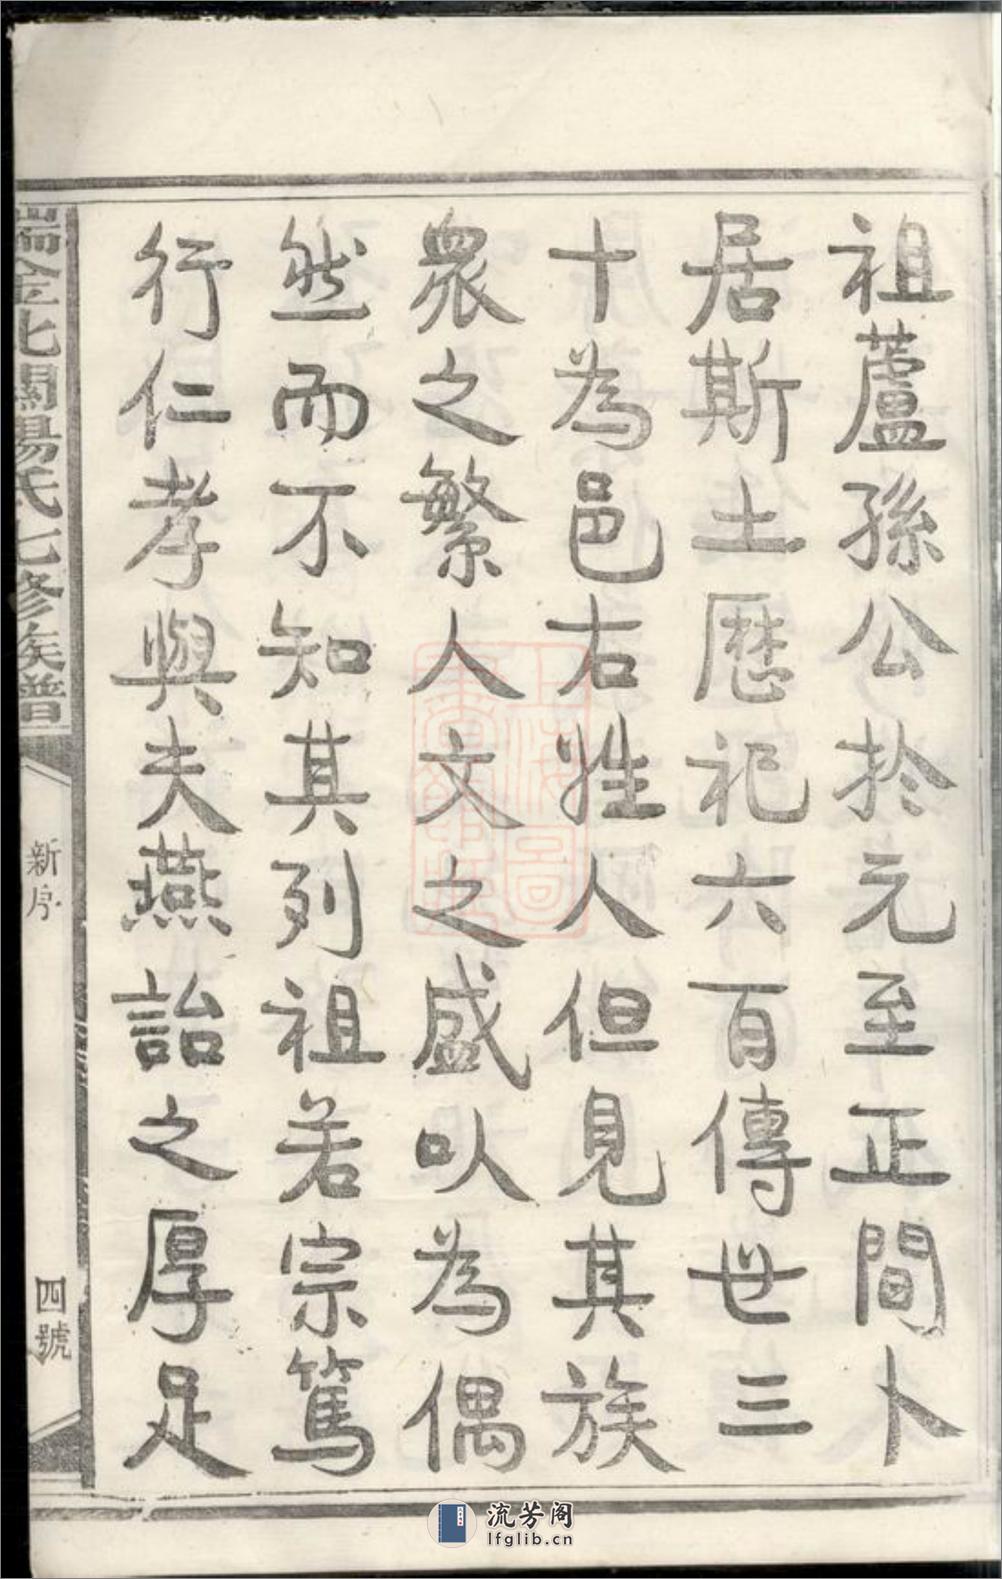 祖蘆孫公於元至正間卜
居斯土歷祀六百傳世三
十為邑右姓人但見其族
衆之繁人文之盛以為偶
然而不知其列祖若宗篤
行仁孝與夫燕詒之厚足
瑞金北關楊氏七修族譜
新序
四號
上海圖書館藏
流芳阁
lfglib.cn